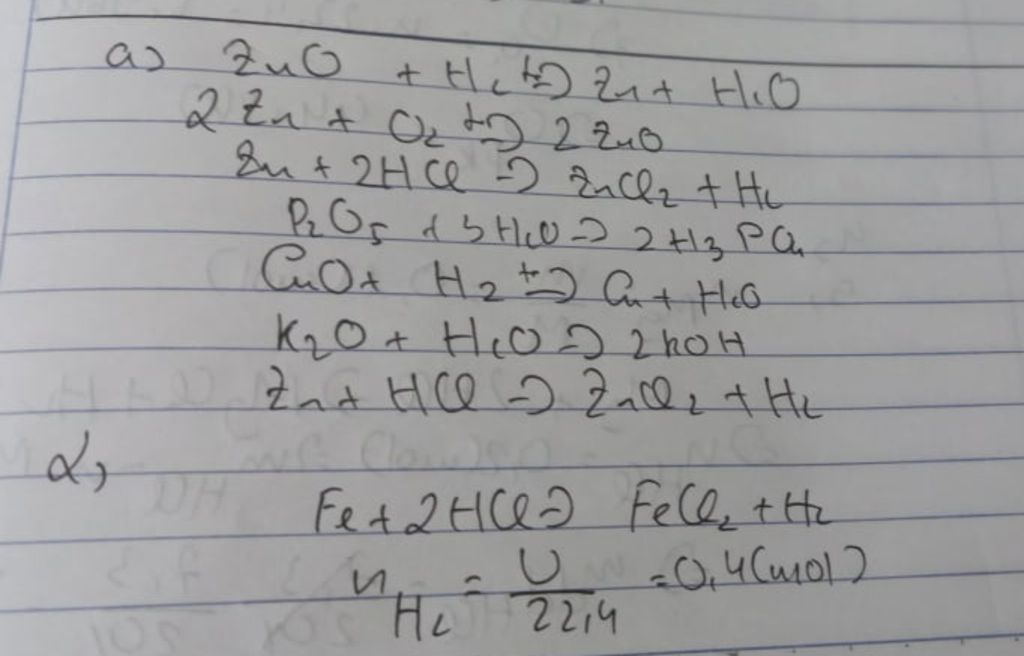 a) ZnO + H₂ t→ Zn + H₂O
2 Zn + O₂ t→ 2 ZnO
Zn + 2HCl → ZnCl₂ + H₂
P₂O₅ + 3 H₂O → 2 H₃PO₄
CuO + H₂ t→ Cu + H₂O
K₂O + H₂O → 2KOH
Zn + HCl → ZnCl₂ + H₂
2,
Fe + 2HCl → FeCl₂ + H₂
n_H₂ = V/22,4 = 0,4 (mol)